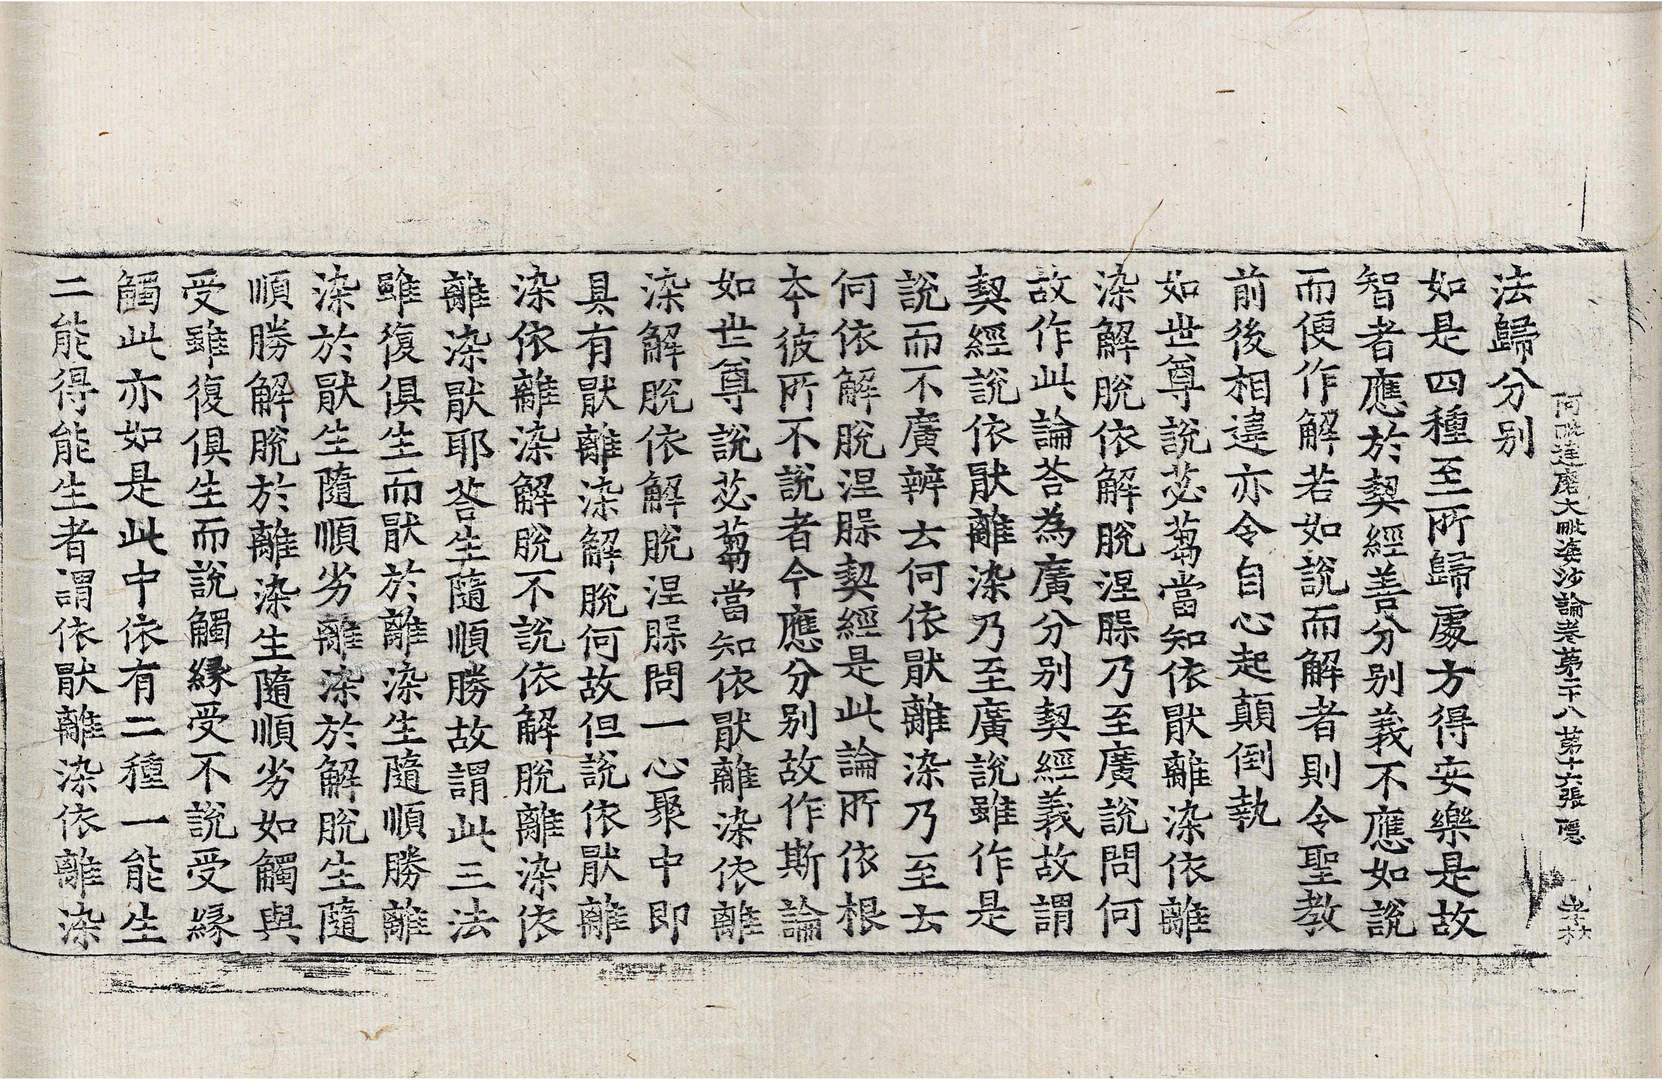 阿毗達磨大毗婆沙論卷第二十八 第十六張 隱
法歸分別
如是四種至所歸處方得安樂是故
智者應於契經善分別義不應如說
而便作解若如說而解者則令聖教
前後相違亦令自心起顛倒執
如世尊說苾蒭當知依厭離染依離
染解脫依解脫涅槃乃至廣說問何
故作此論荅為廣分別契經義故謂
契經說依厭離染乃至廣說雖作是
說而不廣辨云何依厭離染乃至云
何依解脫涅槃契經是此論所依根
本彼所不說者今應分別故作斯論
如世尊說苾蒭當知依厭離染依離
染解脫依解脫涅槃問一心聚中即
具有厭離染解脫何故但說依厭離
染依離染解脫不說依解脫離染依
離染厭耶荅生隨順勝故謂此三法
雖復俱生而厭於離染生隨順勝離
染於厭生隨順劣離染於解脫生隨
順勝解脫於離染生隨順劣如觸與
受雖復俱生而說觸緣受不說受緣
觸此亦如是此中依有二種一能生
二能得能生者謂依厭離染依離染